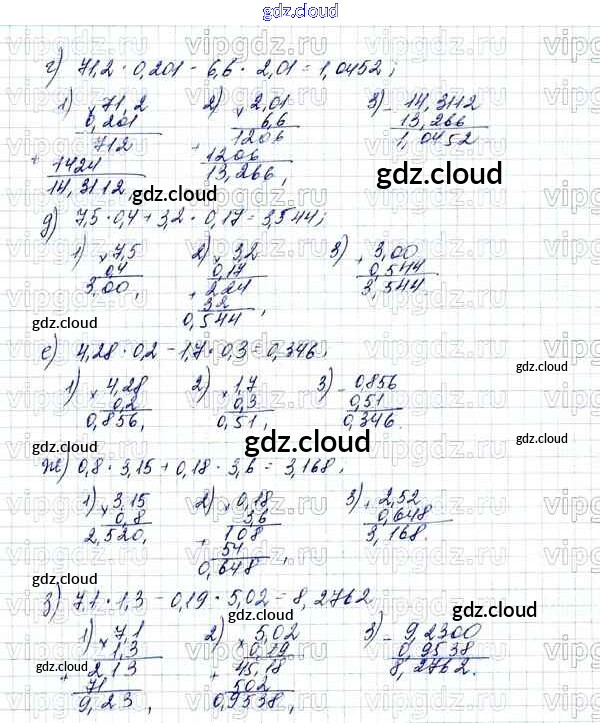 gdz.cloud
г) 71,2 · 0,201 - 6,6 · 2,01 = 1,0452;
1) × 71,2 2) × 2,01 3) - 14,3112
0,201 6,6 13,266
712 1206 1,0452
+ 1424 + 1206
14,3112 13,266,
gdz.cloud
gdz.cloud
д) 7,5 · 0,4 + 3,2 · 0,17 = 3,544;
1) × 7,5 2) × 3,2 3) + 3,00
0,4 0,17 0,544
3,00, + 224 3,544
32
0,544,
gdz.cloud
е) 4,28 · 0,2 - 1,7 · 0,3 = 0,346,
gdz.cloud
1) × 4,28 2) × 1,7 3) - 0,856
0,2 0,3 0,51
0,856, 0,51, 0,346.
gdz.cloud
ж) 0,8 · 3,15 + 0,18 · 3,6 = 3,168,
1) × 3,15 2) × 0,18 3) + 2,52
0,8 3,6 0,648
2,520, + 108 3,168.
54
0,648,
gdz.cloud
gdz.cloud
з) 7,1 · 1,3 - 0,19 · 5,02 = 8,2762
gdz.cloud
1) × 7,1 2) × 5,02 3) - 9,2300
1,3 0,19 0,9538
+ 2,13 + 45,18 8,2762.
71 502
9,23, 0,9538,
gdz.cloud
gdz.cloud
vipgdz.ru